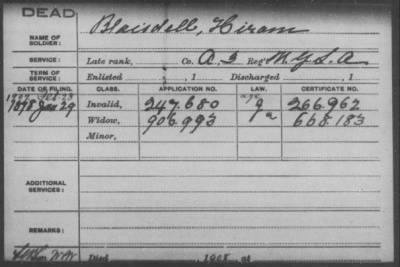 DEAD
NAME OF SOLDIER: Blaisdell, Hiram
SERVICE: Late rank, Co. Reg't
TERM OF SERVICE: Enlisted , 1 Discharged , 1
DATE OF FILING. CLASS. APPLICATION NO. LAW. CERTIFICATE NO.
1878 Jan 29 Invalid, 247.680 266.962
Widow, 906.993 668.183
Minor,
ADDITIONAL SERVICES:
REMARKS:
Died , 1908 at